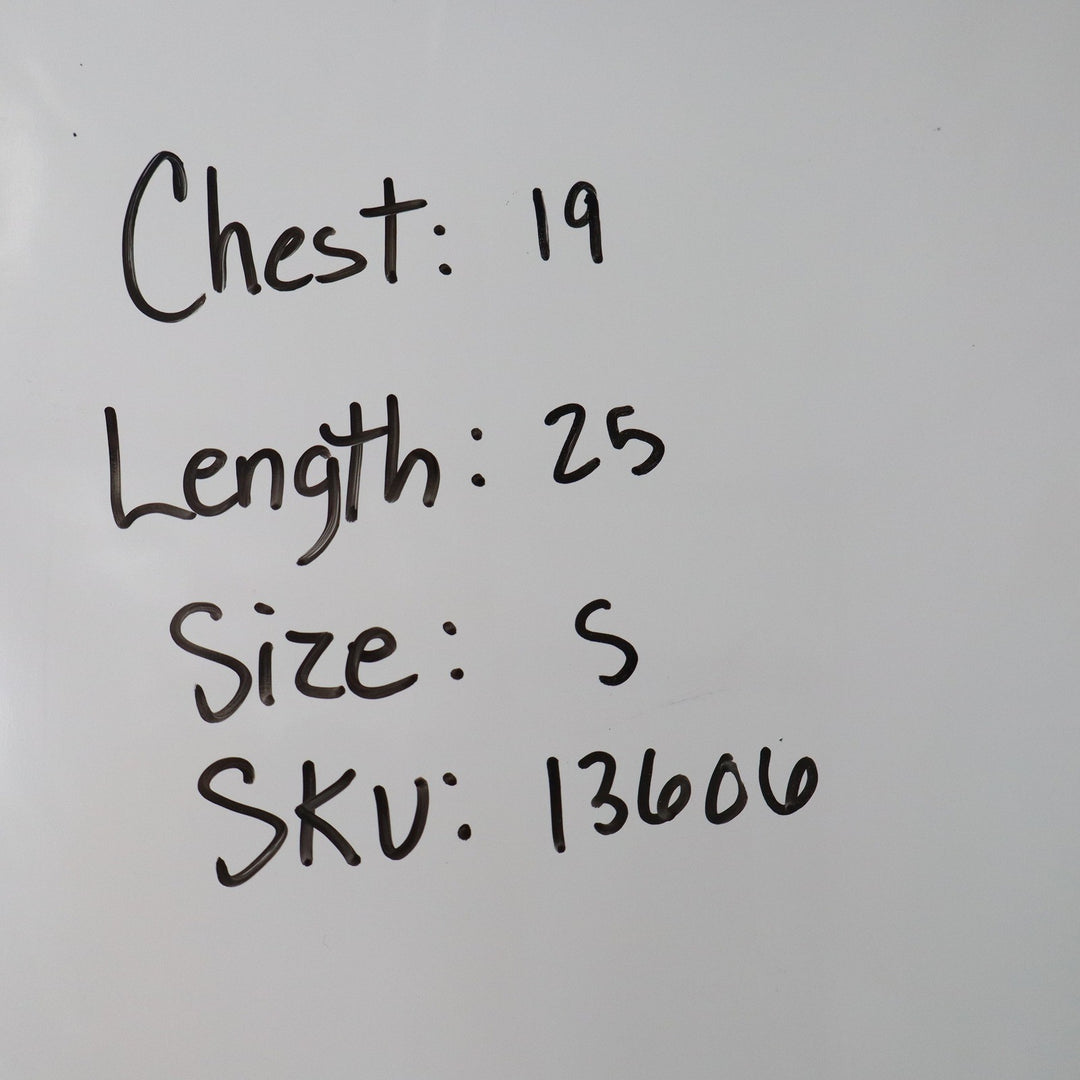 Chest: 19
Length: 25
Size: S
SKU: 13606